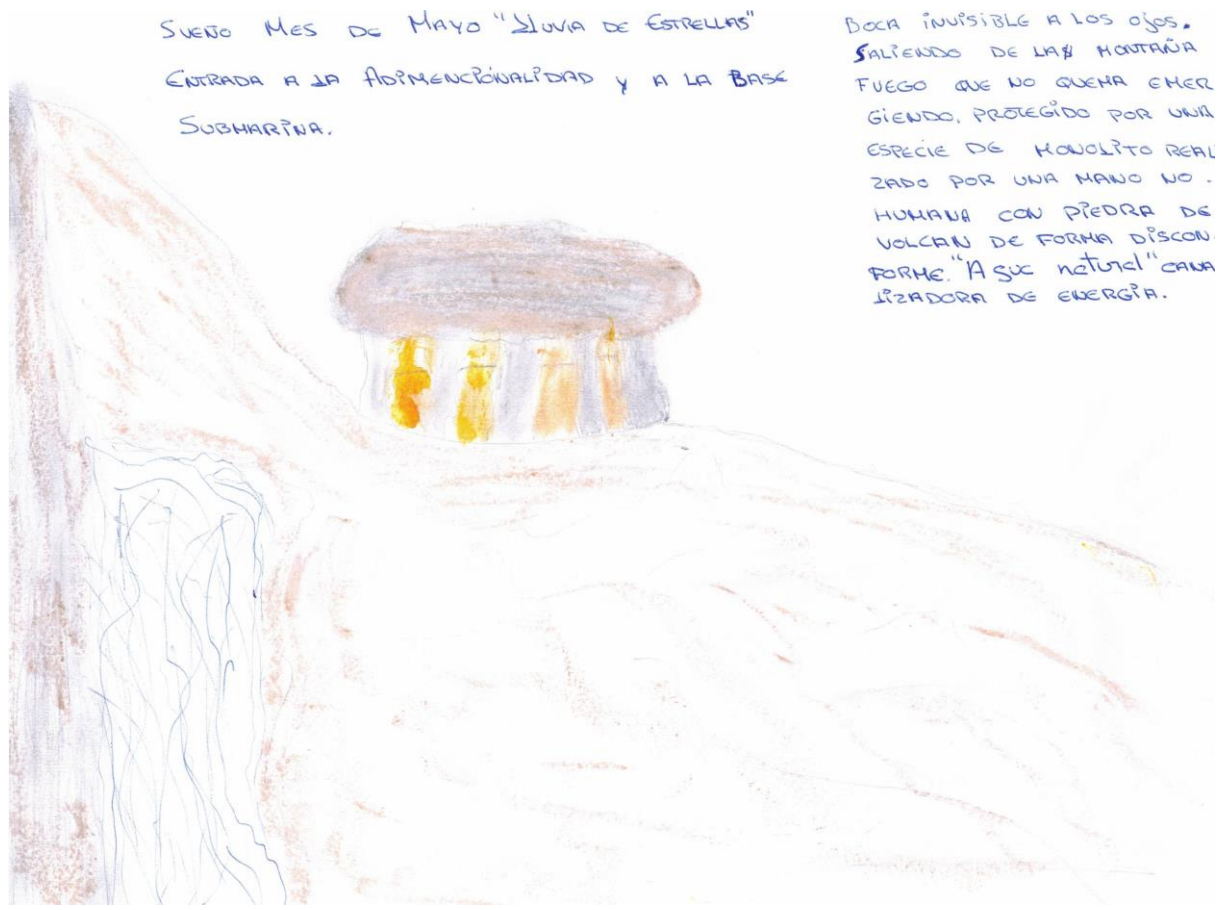 SUEÑO MES DE MAYO "LLUVIA DE ESTRELLAS"
ENTRADA A LA ADIMENCIÓNALIDAD Y A LA BASE
SUBMARINA.
BOCA INVISIBLE A LOS OJOS.
SALIENDO DE LA MONTAÑA
FUEGO QUE NO QUEMA EMER
GIENDO, PROTEGIDO POR UNA
ESPECIE DE MONOLITO REALI
ZADO POR UNA MANO NO.
HUMANA CON PIEDRA DE
VOLCAN DE FORMA DISCON.
FORME. "A SUC natural" CANA
LIZADORA DE ENERGÍA.